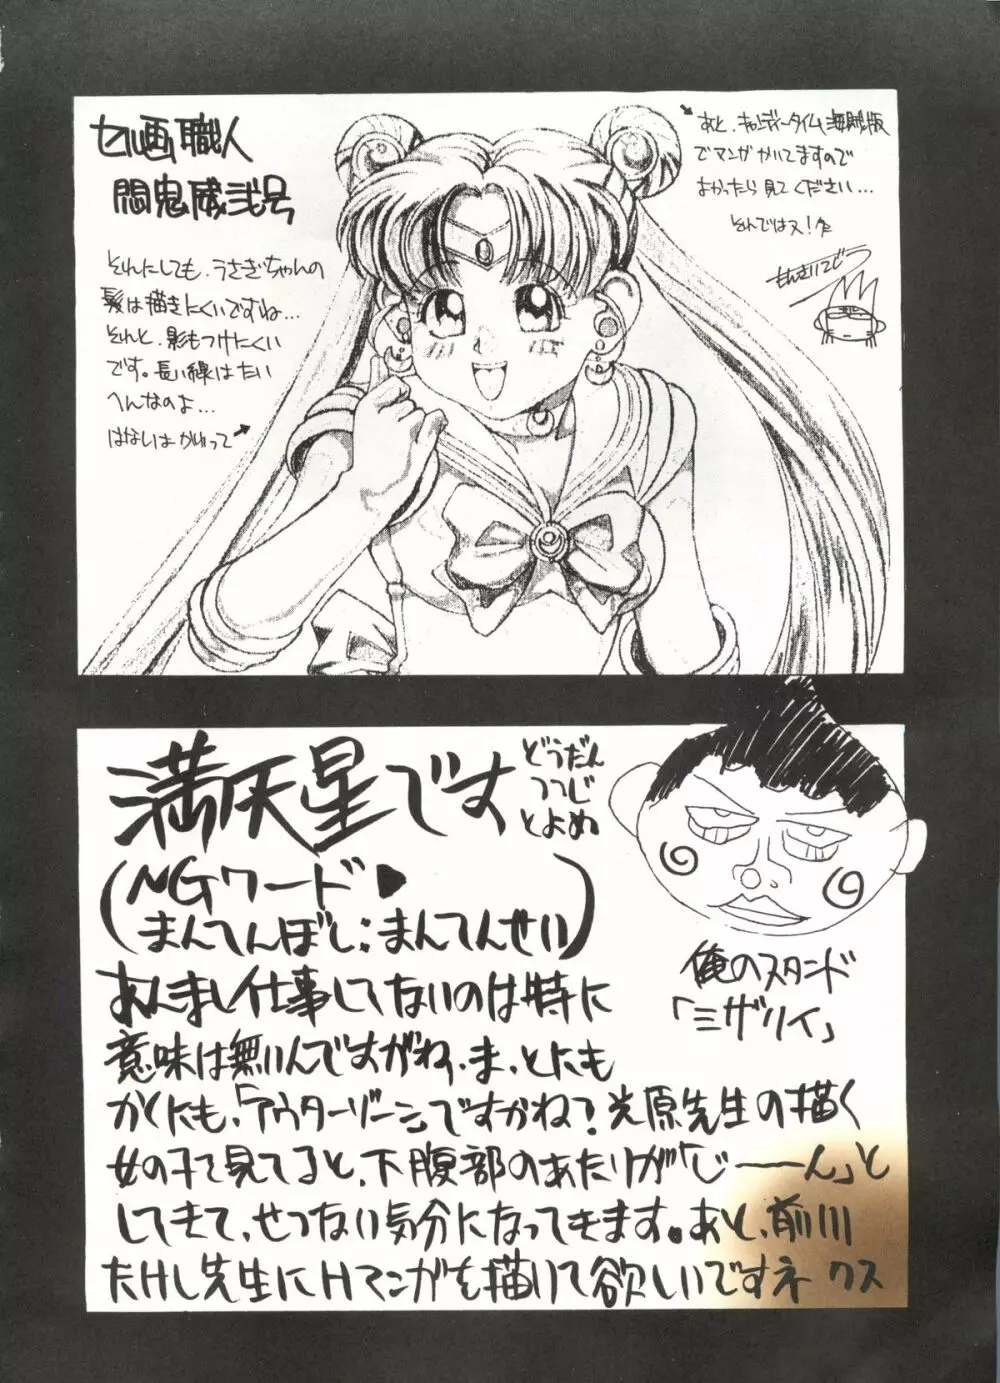 セル画職人
悶鬼威弐号
それにしても、うさぎちゃんの
髪は描きにくいですね…
それと、影もつけにくい
です。長い線はたい
へんなのよ…
はなしはかわって
あと、キャンディータイム海賊版
でマンガかいてますので
よかったら見てください…
そんではヌ!
もんきいにごう
満天星です
どうだん
つつじ
とよぬ
(NGワード♥
まんてんぼし:まんてんせい)
俺のスタンド
「ミザリィ」
あんまし仕事してないのは特に
意味は無いんですがね、ま、とにも
かくにも、「アウターゾーン」ですかね?光原先生の描く
女の子て見てると、下腹部のあたりが「じーーん」と
してきて、せつない気分になってきます。あと、前川
たけし先生にHマンガを描いて欲しいですネ クス